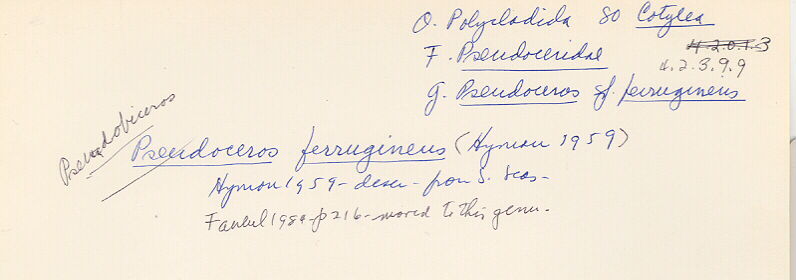 O. Polycladida SO Cotylea
F. Pseudoceridae 4.2.0.1.3
4.2.3.9.9
G. Pseudoceros sf ferrugineus
Pseudobiceros
Pseudoceros ferrugineus (Hyman 1959)
Hyman 1959 - descr - from S. Seas -
Faubel 1984 - p 216 - moved to this genu.